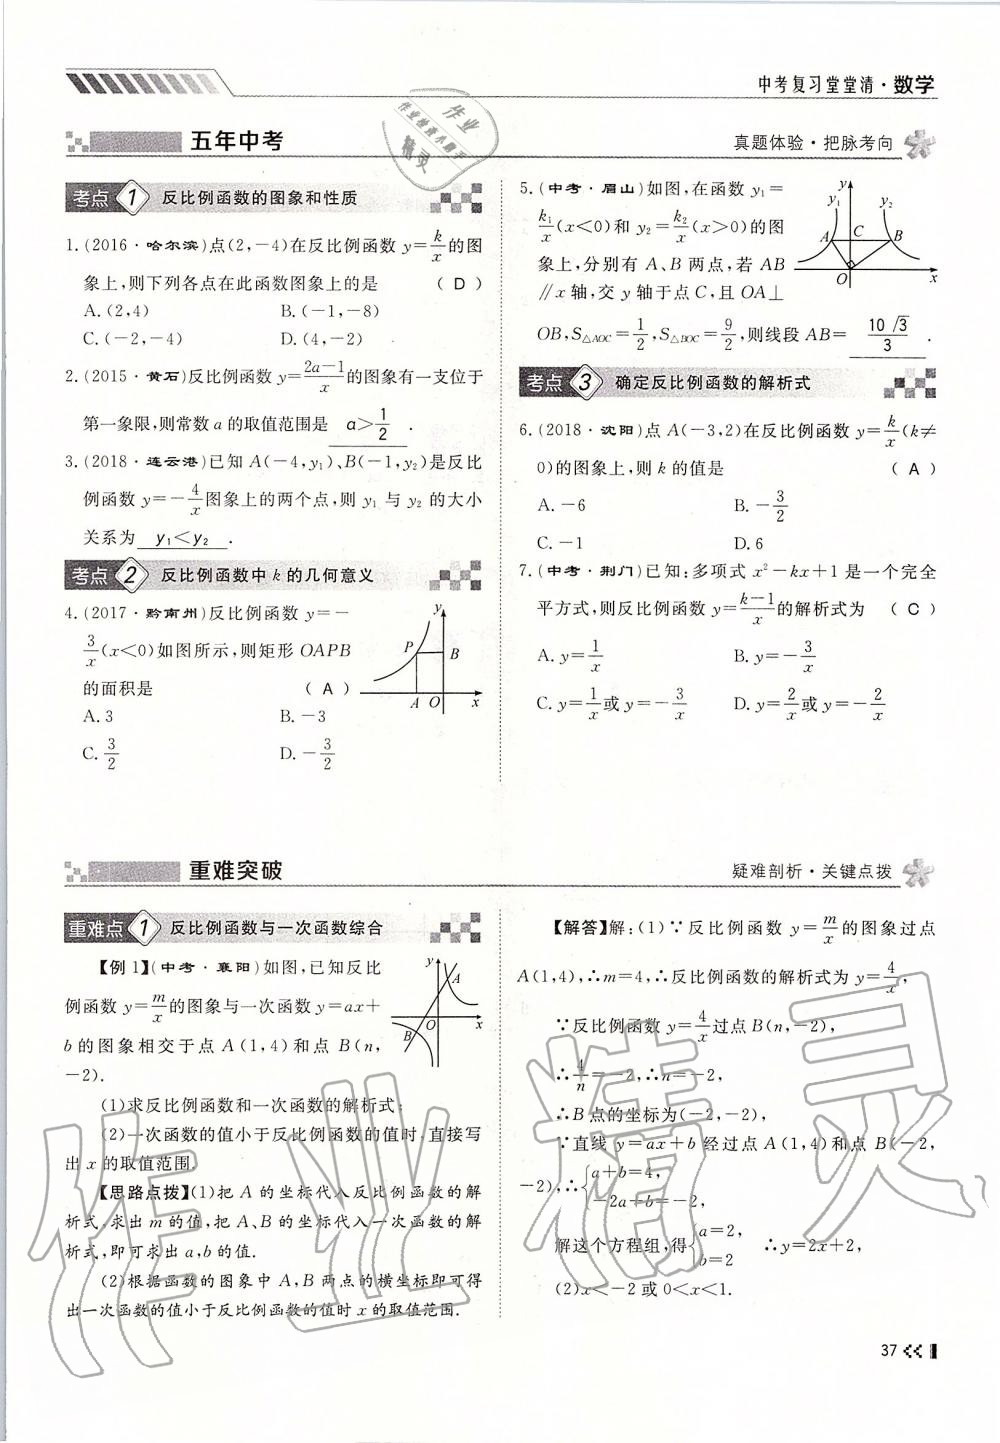 中考复习堂堂清·数学
五年中考
真题体验·把脉考向
考点 1 反比例函数的图象和性质
1.(2016·哈尔滨)点(2,-4)在反比例函数 y=k/x的图
象上,则下列各点在此函数图象上的是 ( D )
A.(2,4) B.(-1,-8)
C.(-2,-4) D.(4,-2)
2.(2015·黄石)反比例函数 y=(2a-1)/x的图象有一支位于
第一象限,则常数 a 的取值范围是 a>1/2 .
3.(2018·连云港)已知 A(-4,y₁)、B(-1,y₂)是反比
例函数 y=-4/x图象上的两个点,则 y₁ 与 y₂ 的大小
关系为 y₁<y₂ .
考点 2 反比例函数中 k 的几何意义
4.(2017·黔南州)反比例函数 y=-
3/x(x<0)如图所示,则矩形 OAPB
的面积是 ( A )
A.3 B.-3
C.3/2 D.-3/2
y
P B
A O x
5.(中考·眉山)如图,在函数 y₁=
k₁/x(x<0)和 y₂=k₂/x(x>0)的图
象上,分别有 A、B 两点,若 AB
∥x 轴,交 y 轴于点 C,且 OA⊥
OB,S△AOC=1/2,S△BOC=9/2,则线段 AB= 10√3/3 .
y
y₁ y₂
A C B
O x
考点 3 确定反比例函数的解析式
6.(2018·沈阳)点 A(-3,2)在反比例函数 y=k/x(k≠
0)的图象上,则 k 的值是 ( A )
A.-6 B.-3/2
C.-1 D.6
7.(中考·荆门)已知:多项式 x²-kx+1 是一个完全
平方式,则反比例函数 y=(k-1)/x的解析式为 ( C )
A.y=1/x B.y=-3/x
C.y=1/x或 y=-3/x D.y=2/x或 y=-2/x
重难突破
疑难剖析·关键点拨
重难点 1 反比例函数与一次函数综合
【例 1】(中考·襄阳)如图,已知反比
例函数 y=m/x的图象与一次函数 y=ax+
b 的图象相交于点 A(1,4)和点 B(n,
-2).
y
A
O x
B
(1)求反比例函数和一次函数的解析式;
(2)一次函数的值小于反比例函数的值时,直接写
出 x 的取值范围.
【思路点拨】(1)把 A 的坐标代入反比例函数的解
析式,求出 m 的值,把 A、B 的坐标代入一次函数的解
析式,即可求出 a,b 的值.
(2)根据函数的图象中 A,B 两点的横坐标即可得
出一次函数的值小于反比例函数的值时 x 的取值范围.
【解答】解:(1)∵反比例函数 y=m/x的图象过点
A(1,4),∴m=4,∴反比例函数的解析式为 y=4/x,
∵反比例函数 y=4/x过点 B(n,-2),
∴4/n=-2,∴n=-2,
∴B 点的坐标为(-2,-2),
∵直线 y=ax+b 经过点 A(1,4)和点 B(-2,
-2),∴{a+b=4,
-2a+b=-2,
解这个方程组,得{a=2,
b=2 ∴y=2x+2,
(2)x<-2 或 0<x<1.
37
作业精灵
作业检查小助手
作业精灵